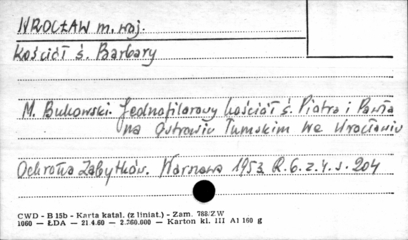 WROCŁAW m. woj.
Kościół ś. Barbary
M. Bukowski. Jednofilarowy kościół ś. Piotra i Pawła
na Ostrowiu Tumskim we Wrocławiu
Ochrona Zabytków. Warszawa 1953 R.6.z.4.s.204
CWD - B 15b - Karta katal. (z liniat.) - Zam. 788/ZW
1060 — ŁDA — 21.4.60 — 2.260.000 — Karton kl. III A1 160 g